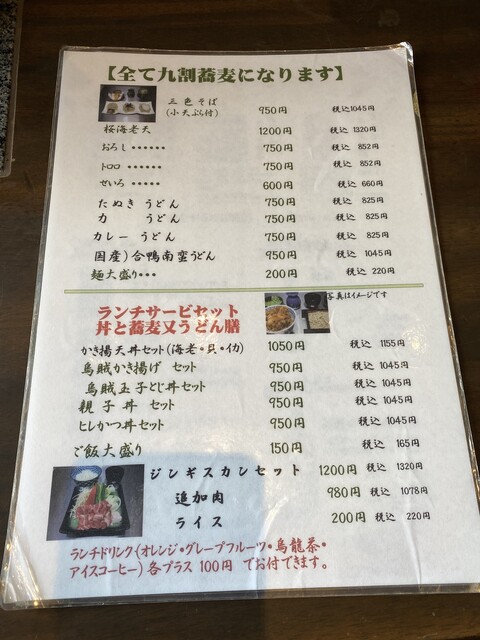 【全て九割蕎麦になります】
三色そば 950円 税込1045円
(小天ぷら付)
桜海老天 1200円 税込 1320円
おろし •••••• 750円 税込 852円
トロロ •••••• 750円 税込 852円
せいろ ••••• 600円 税込 660円
たぬき うどん 750円 税込 825円
力 うどん 750円 税込 825円
カレー うどん 750円 税込 825円
国産)合鴨南蛮うどん 950円 税込 1045円
麺大盛り••• 200円 税込 220円
ランチサービセット
丼と蕎麦又うどん膳
写真はイメージです
かき揚天丼セット(海老・貝・イカ) 1050円 税込 1155円
烏賊かき揚げ セット 950円 税込 1045円
烏賊玉子とじ丼セット 950円 税込 1045円
親子丼 セット 950円 税込 1045円
ヒレかつ丼セット 950円 税込 1045円
ご飯大盛り 150円 税込 165円
ジンギスカンセット 1200円 税込 1320円
追加肉 980円 税込 1078円
ライス 200円 税込 220円
ランチドリンク(オレンジ・グレープフルーツ・烏龍茶・
アイスコーヒー)各プラス 100円 でお付できます。